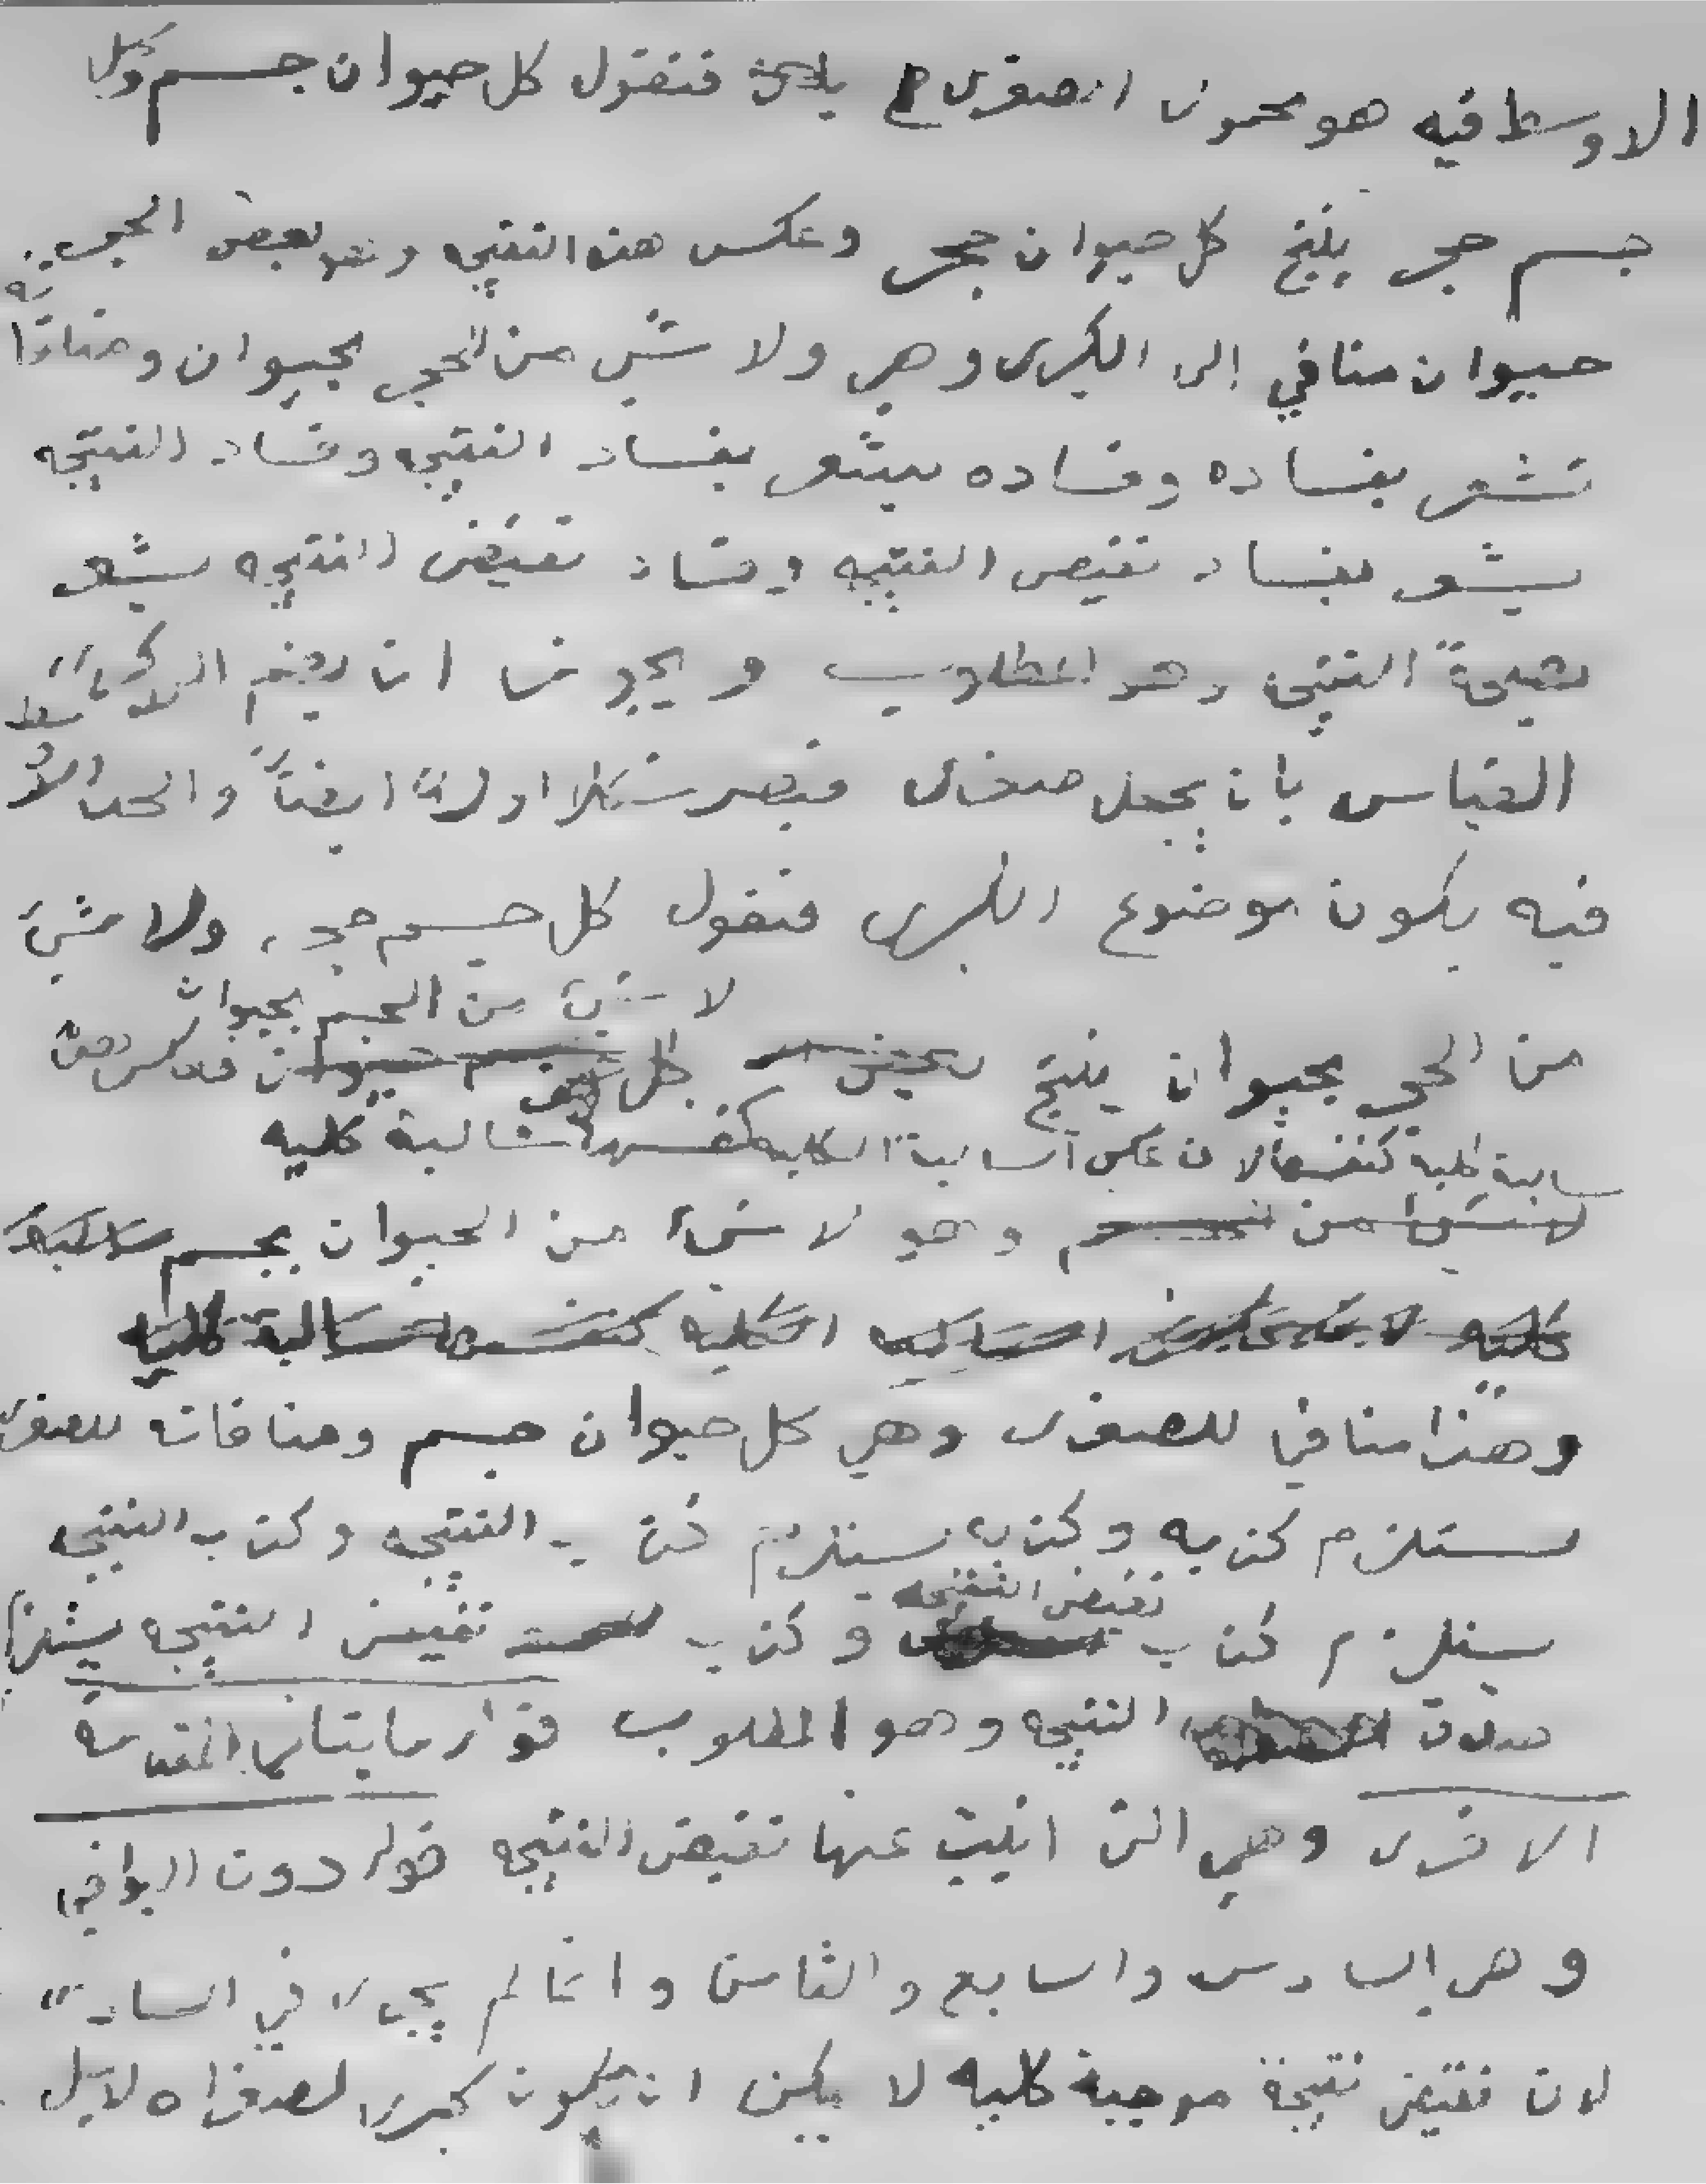 الاوسط فيه هو محمول الصغرى فنقول كل حيوان جسم وكل
جسم حجر ينتج كل حيوان حجر وعكس هذه النتيجه وهو بعض الحجر
حيوان منافي إلى الكبرى وهي ولا شئ من الحجر بحيوان ومنافاته
تشعر بفساده وفساده يشعر بفساد النتيجه وفساد النتيجه
يشعر بفساد نقيض النتيجه وفساد نقيض النتيجه يشعر
بصحة النتيجه وهو المطلوب و يجوز ان يضم الى كبرى
القياس بان يجعل صغرى فيصير شكلا اولا ايضاً والحد الاوسط
فيه يكون موضوع الكبرى فنقول كل جسم حجر، ولا شئ
لا شئ من الجسم بحيوان
من الحجر بحيوان ينتج
سالبة كلية كنفسها لان عكس السالبة الكليه كنفسها سالبة كليه
وهو لا شئ من الحيوان بجسم
كليه السالبه الكليه كنفسها سالبة كليه
وهذا منافي للصغرى وهي كل حيوان جسم ومنافاته للصغرى
يستلزم كذبه وكذبه يستلزم كذب النتيجه وكذب النتيجه
نقيض النتيجه
يستلزم كذب وكذب نقيض النتيجه يستلزم
صدق النتيجه وهو المطلوب قوله ما ينافي المقدمه
الاخرى وهي التى انيبت عنها نقيض النتيجه قوله دون البواقي
وهي السادس والسابع والثامن وانما لم يجرى في السادس
لان نقيض نتيجة موجبة كليه لا يمكن ان يكون كبرى لصغراه لان كل